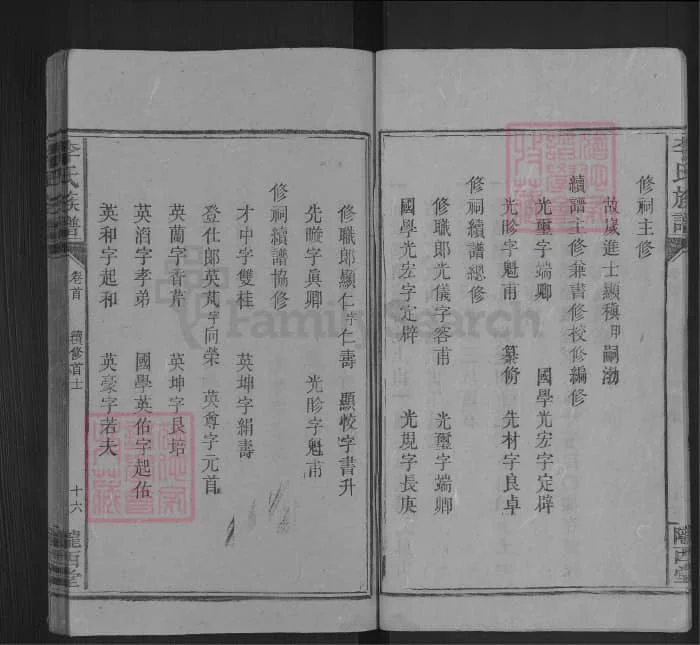 李氏族譜
隴西堂
修祠主修
故歲進士顯稹甲嗣渤
續譜主修兼書修校修編修
光璽字端卿 國學光宏字定辟
光昣字魁甫 纂脩 先材字良卓
修祠續譜總修
修職郎光儀字容甫 光璽字端卿
國學光宏字定辟 光規字長庚
修職郎顯仁字仁壽 顯恔字書升
先 字眞卿 光昣字魁甫
修祠續譜協修
才中字雙桂 英坤字絹壽
登仕郎英芃字向榮 英尊字元首
英蔄字香芹 英坤字艮培
英滔字孝弟 國學英佑字起佑
英和字起和 英豪字若夫
李氏族譜 卷首 續修首士 十六 隴西堂
FamilySearch